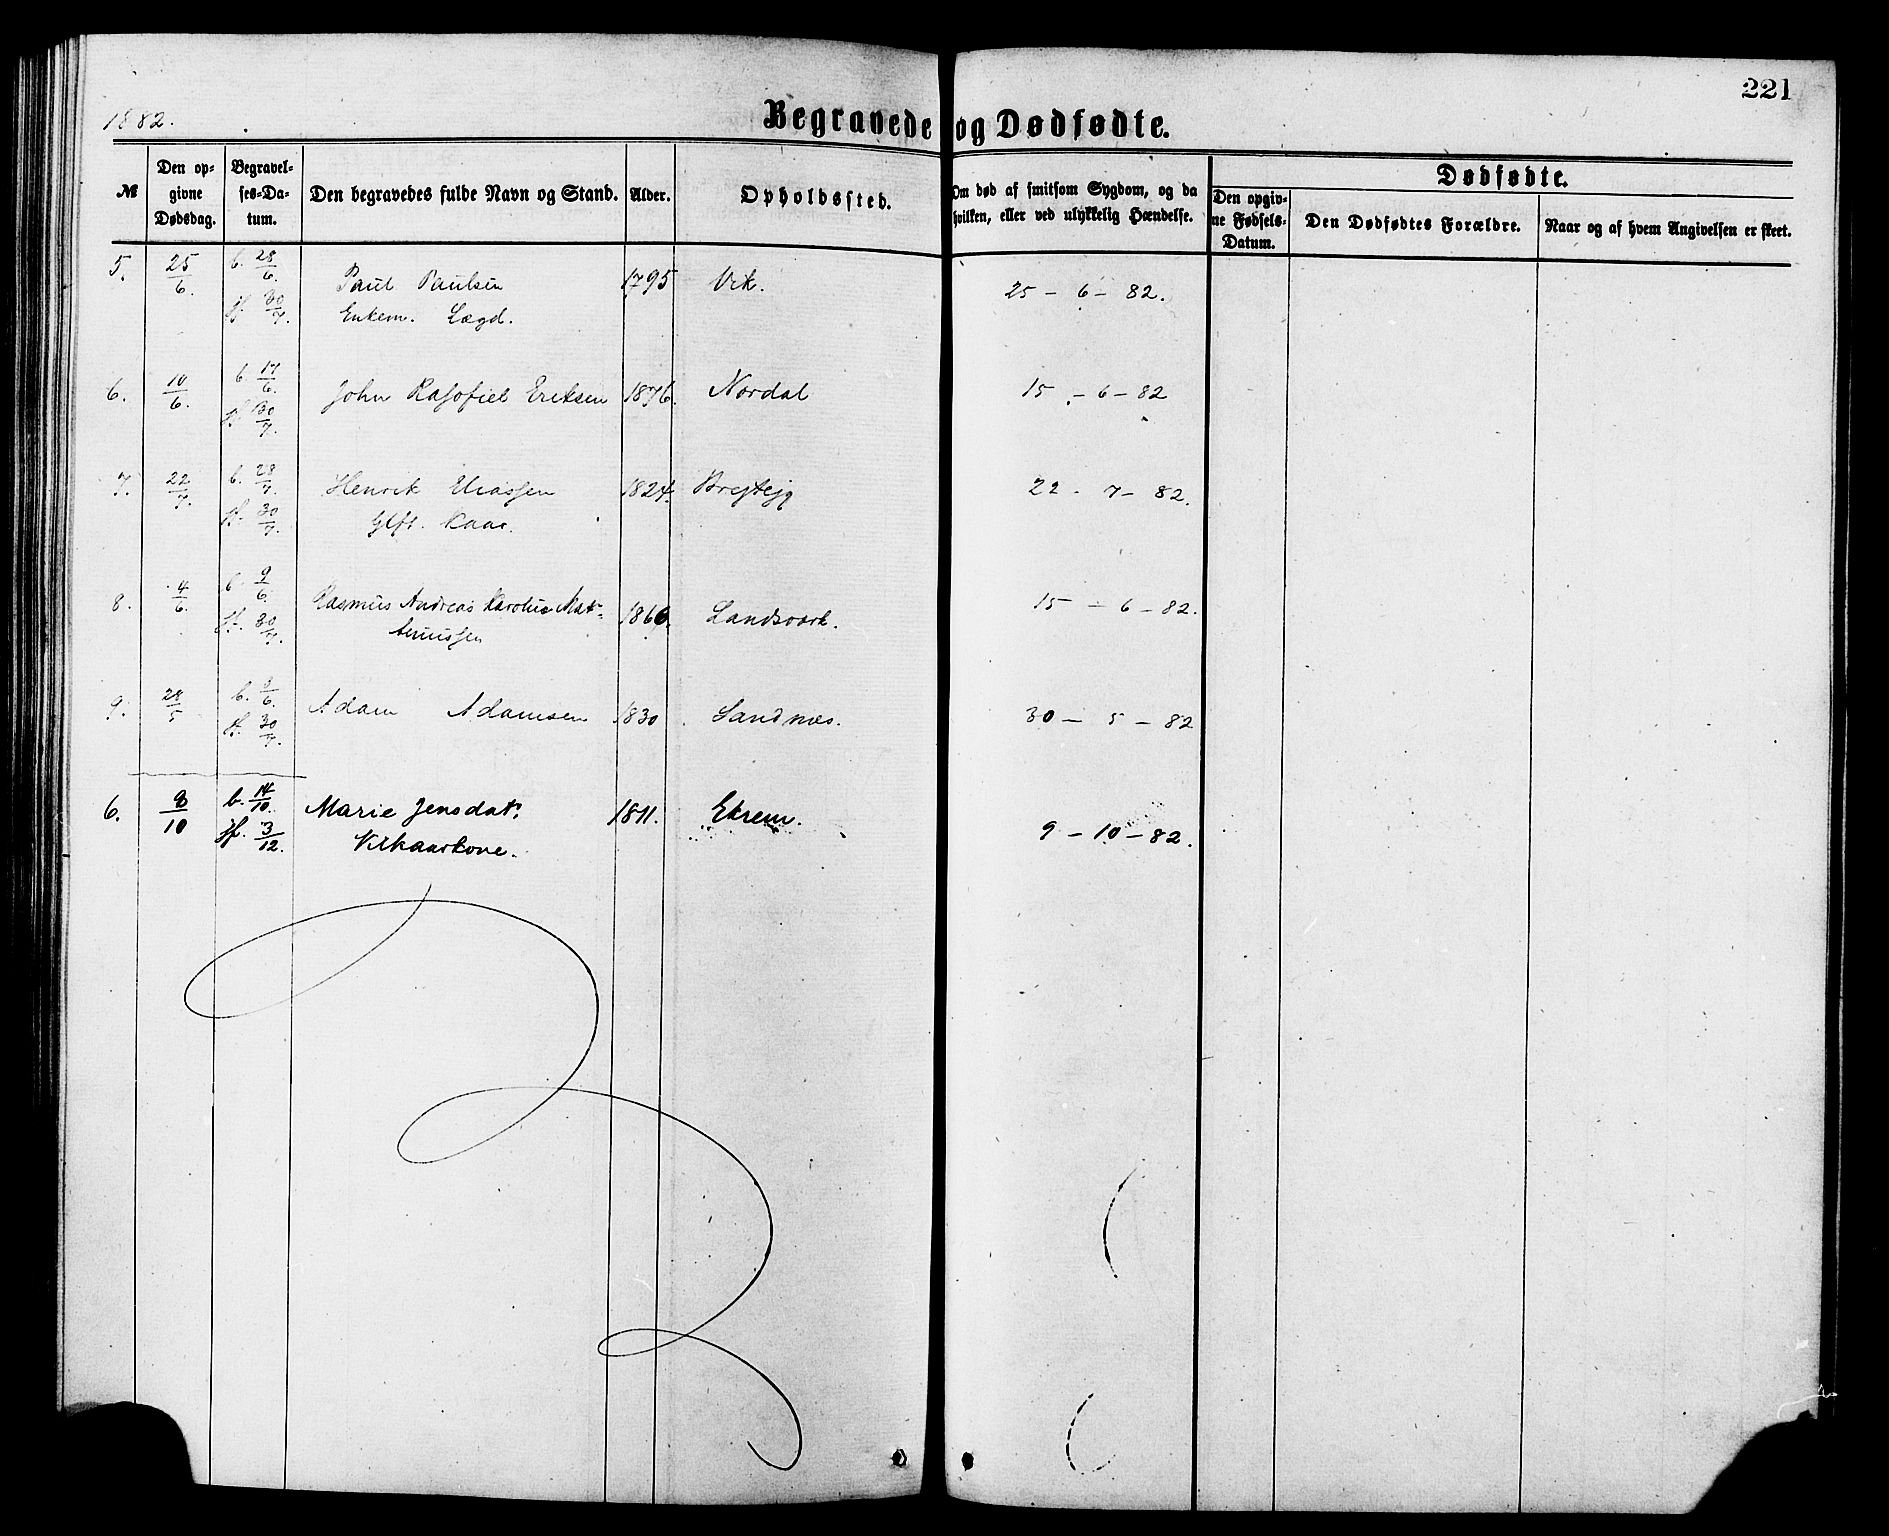 221
1882.
Begravede og Dødfødte.
№
Den opgivne Dødsdag.
Begravelses-Datum.
Den begravedes fulde Navn og Stand.
Alder.
Opholdssted.
Om død af smitsom Sygdom, og da hvilken, eller ved ulykkelig Hændelse.
Dødfødte.
Den opgivne Fødsels-Datum.
Den Dødfødtes Forældre.
Naar og af hvem Angivelsen er skeet.
5. 25/6. b. 28/6. Paul Paulsen 1795 Vik. 25 - 6 - 82.
jf. 30/7. Enkem. Lægd.
6. 10/6. b. 17/6. John Eriksen 1876. Nordal 15 - 6 - 82
jf. 30/7.
7. 22/7. b. 28/7. Henrik Eliassen 1824. 22 - 7 - 82.
jf. 30/7. Gift. Kaar.
8. 4/6. b. 9/6. Rasmus Andreas Karolius Mat- 1866. 15 - 6 - 82.
jf. 30/7.
9. 28/5 b. /6. Adam Adamsen 1830. Sandnæs. 30 - 5 - 82
jf. 30/7.
6. 9/10 b. 14/10. Marie Jensdatr. 1811. Ekrem. 9 - 10 - 82.
jf. 3/12. Vilkaarkone.